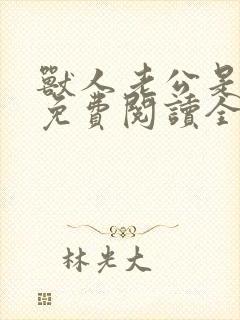 獸人老公是
免費閱讀全
林光大